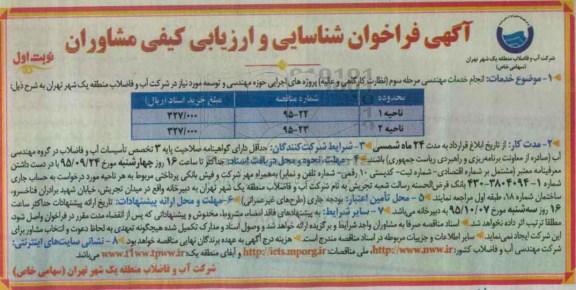 آگهی فراخوان شناسایی و ارزیابی کیفی مشاوران
نوبت اول
شرکت آب و فاضلاب منطقه یک شهر تهران
(سهامی خاص)
۱- موضوع خدمات: انجام خدمات مهندسی مرحله سوم (نظارت کارگاهی و عالیه) پروژه های اجرایی حوزه مهندسی و توسعه مورد نیاز در شرکت آب و فاضلاب منطقه یک شهر تهران به شرح ذیل:
محدوده شماره مناقصه مبلغ خرید اسناد (ریال)
ناحیه ۱ ۹۵-۲۲ ۳۲۷/۰۰۰
ناحیه ۲ ۹۵-۲۳ ۳۲۷/۰۰۰
۲- مدت کار: از تاریخ ابلاغ قرارداد به مدت ۲۴ ماه شمسی ۳- شرایط شرکت کنندگان: حداقل دارای گواهینامه صلاحیت پایه ۳ تخصص تأسیسات آب و فاضلاب در گروه مهندسی
آب (صادره از معاونت برنامه‌ریزی و راهبردی ریاست جمهوری) باشند ۴- مهلت، نحوه و محل دریافت اسناد: حداکثر تا ساعت ۱۶ روز چهارشنبه مورخ ۹۵/۰۹/۲۴ با در دست داشتن
معرفینامه معتبر (مشتمل بر شماره اقتصادی- شماره ثبت- کدپستی ۱۰ رقمی- شماره تلفن و نمابر) به‌همراه مهر شرکت و فیش بانکی پرداختی مربوط به هر ناحیه مورد درخواست به حساب جاری
شماره ۱-۹۴۰۳۸۰۴-۴۳۰ بانک قرض‌الحسنه رسالت شعبه تجریش به نام شرکت آب و فاضلاب منطقه یک شهر تهران به دبیرخانه واقع در میدان تجریش، خیابان شهید برادران فناخسرو،
ساختمان شماره ۱۸، طبقه اول مراجعه نمایند. ۵- محل تأمین اعتبار: بودجه جاری (طرح‌های غیرعمرانی) ۶- مهلت و محل ارائه پیشنهادات: تاریخ ارائه پیشنهادات حداکثر تا ساعت
۱۶ روز سه‌شنبه مورخ ۹۵/۱۰/۰۷ به دبیرخانه می‌باشد. ۷- سایر شرایط: به پیشنهادهای فاقد امضاء، مشروط، مخدوش و پیشنهاداتی که پس از انقضاء مدت مقرر در فراخوان واصل شود،
مطلقا ترتیب اثر داده نخواهد شد. اسناد مناقصه صرفا به مشاوران واجد شرایط و برگزیده ارائه خواهد شد و وصول اسناد و مدارک تکمیل شده هیچگونه تعهدی به لحاظ دعوت و انتخاب مشاور برای
این شرکت ایجاد نمی‌نماید. سایر اطلاعات و جزییات مربوطه در اسناد مناقصه مندرج است. هزینه درج آگهی به عهده برندگان نهایی مناقصه خواهد بود. ۸- نشانی سایت‌های اینترنتی:
شرکت مهندسی آب و فاضلاب کشور: http://www.nww.ir، ملی مناقصات: http://iets.mporg.ir و آبفای منطقه یک: www.t1ww.tpww.ir می‌باشد
شرکت آب و فاضلاب منطقه یک شهر تهران (سهامی خاص)